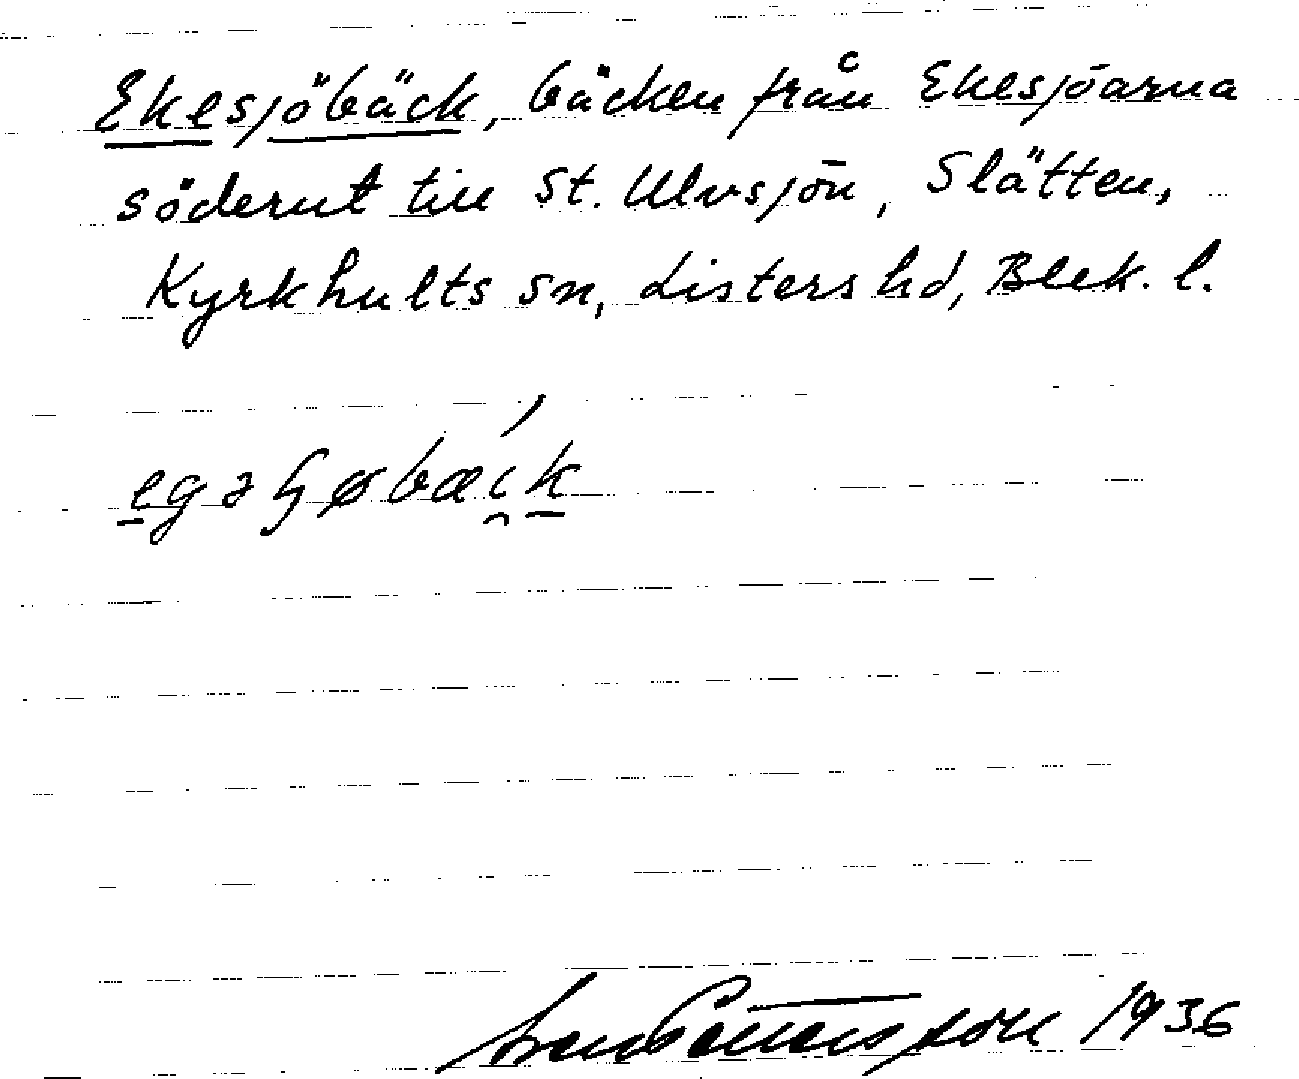 Ekesjöbäck, bäcken från Ekesjöarna
söderut till St. Ulvsjön, Slätten,
Kyrkhults sn, Listers hd, Blek. l.
1936